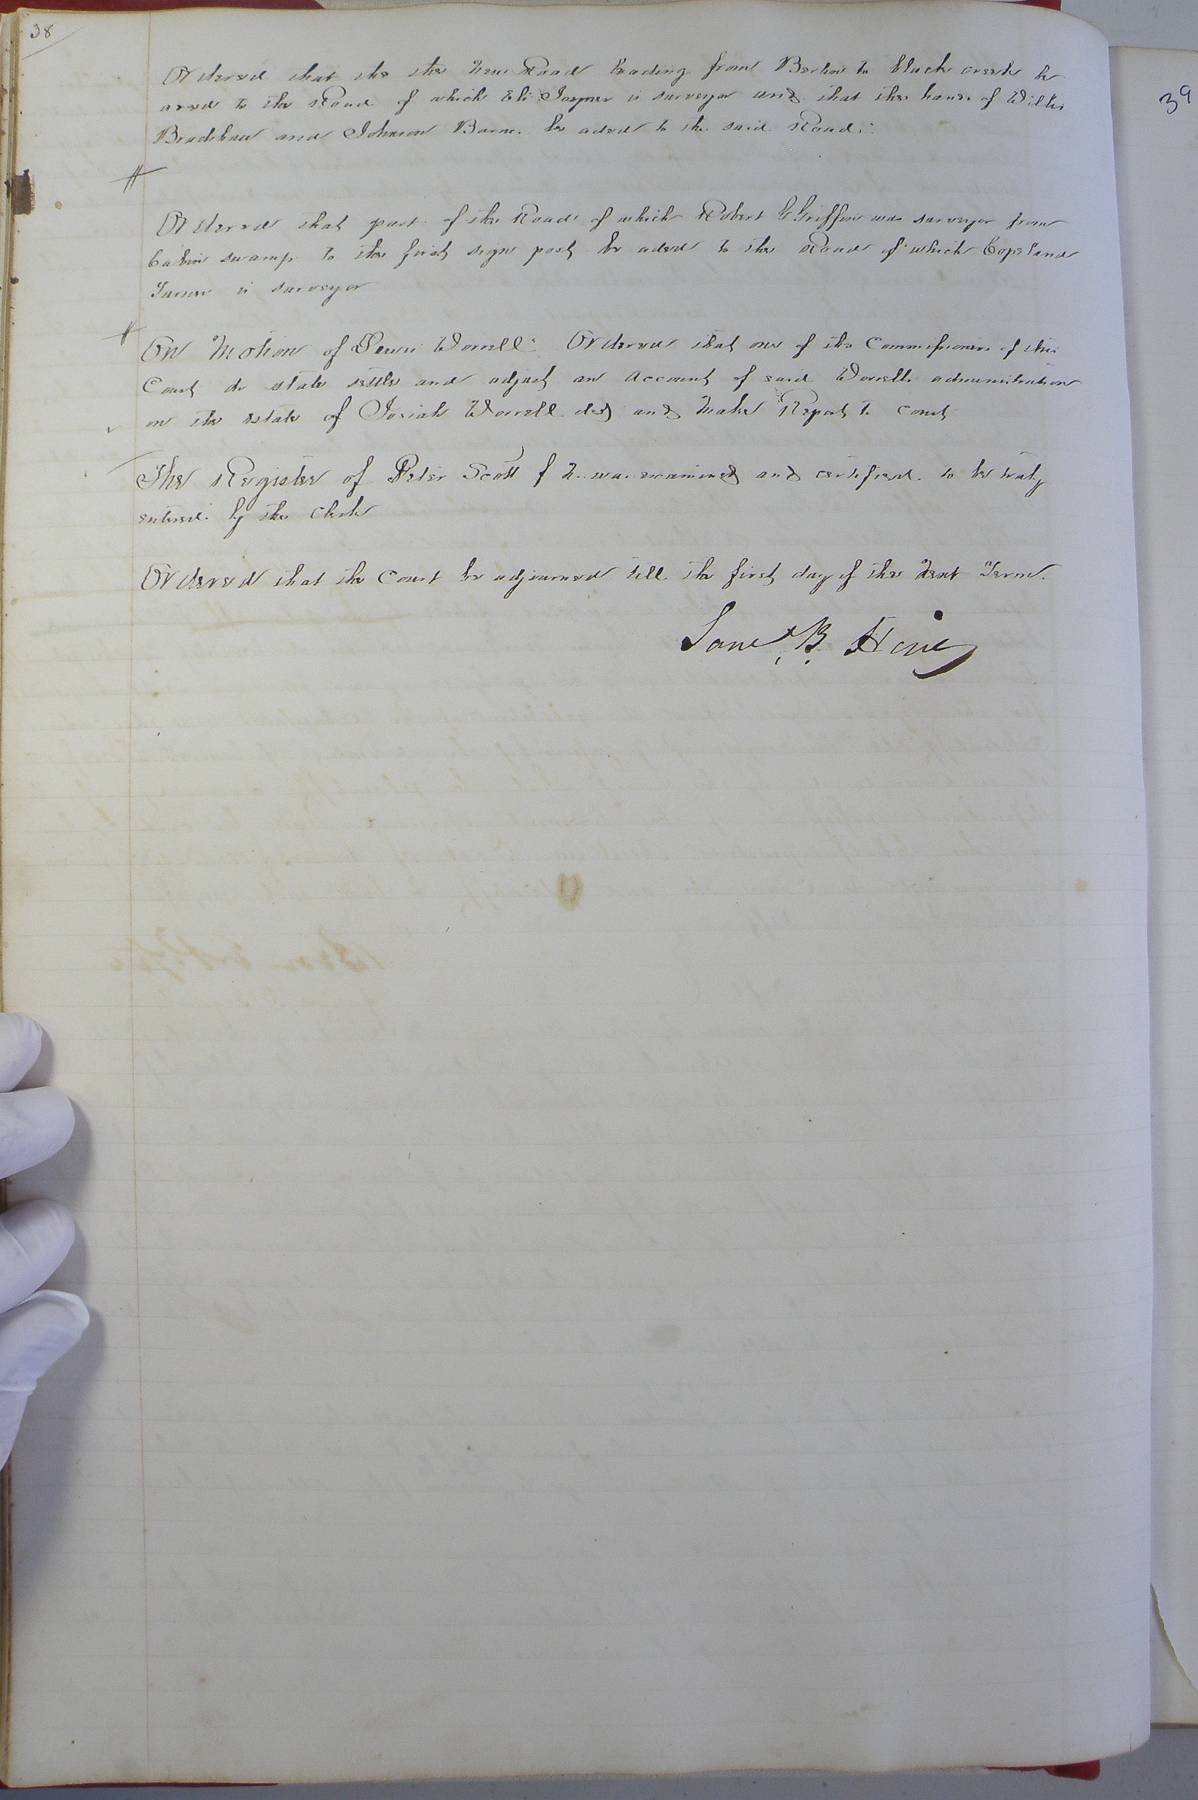 38
Ordered that the the New Road leading from Berlin to black creek be
aded to the Road of which Eli Joyner is surveyor and that the hands of Willis
Bradshaw and Johnson Barnes be aded to the said Road.
Ordered that part of the Road of which Robert G Griffin was surveyor from
Cabin swamp to the first sign post be aded to the Road of which Copeland
Turner is surveyor
On Motion of Worrell Ordered that one of the Commissioners of this
Court do state settle and adjust an account of said Worrells administration
on the estate of Josiah Worrell decd and make Report to court
The Register of Peter Scott f N. was examined and certified to be truly
entered by the clerk
Ordered that the Court be adjourned till the first day of the Next Term.
B. Hine
39